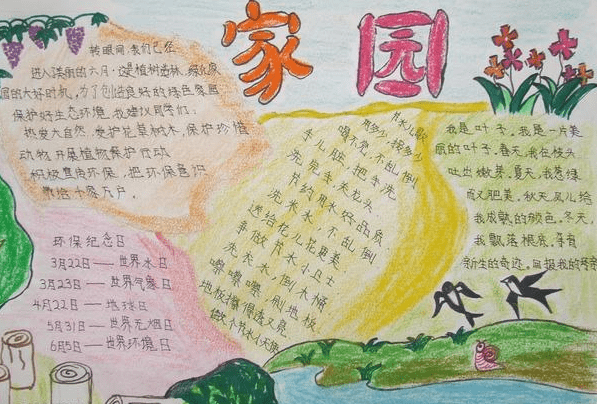 家园
转眼间,我们已经
进入美丽的六月,这是植树造林、绿化家
园的大好时机,为了创造良好的绿色家园
保护好生态环境,我建议同学们:
热爱大自然,爱护花草树木,保护珍惜
动物,开展植物保护行动
积极宣传环保,把环保意识
带给千家万户。
环保纪念日
3月22日——世界水日
3月23日——世界气象日
4月22日——地球日
5月31日——世界无烟日
6月5日——世界环境日
节水儿歌
用多少,接多少
喝不完,不乱倒
手儿脏,把手洗
洗完手,关龙头
节约用水好品质
洗米水,不乱倒
送给花儿花更美
争做节水小卫士
洗衣水,倒大桶
唰唰唰,刷地板
地板擦得透又亮
我是叶子。我是一片美
丽的叶子。春天,我在枝头
吐出嫩芽。夏天,我葱绿
而又肥美。秋天,风儿给
我成熟的颜色。冬天,
我飘落根底,孕育
新生的奇迹。